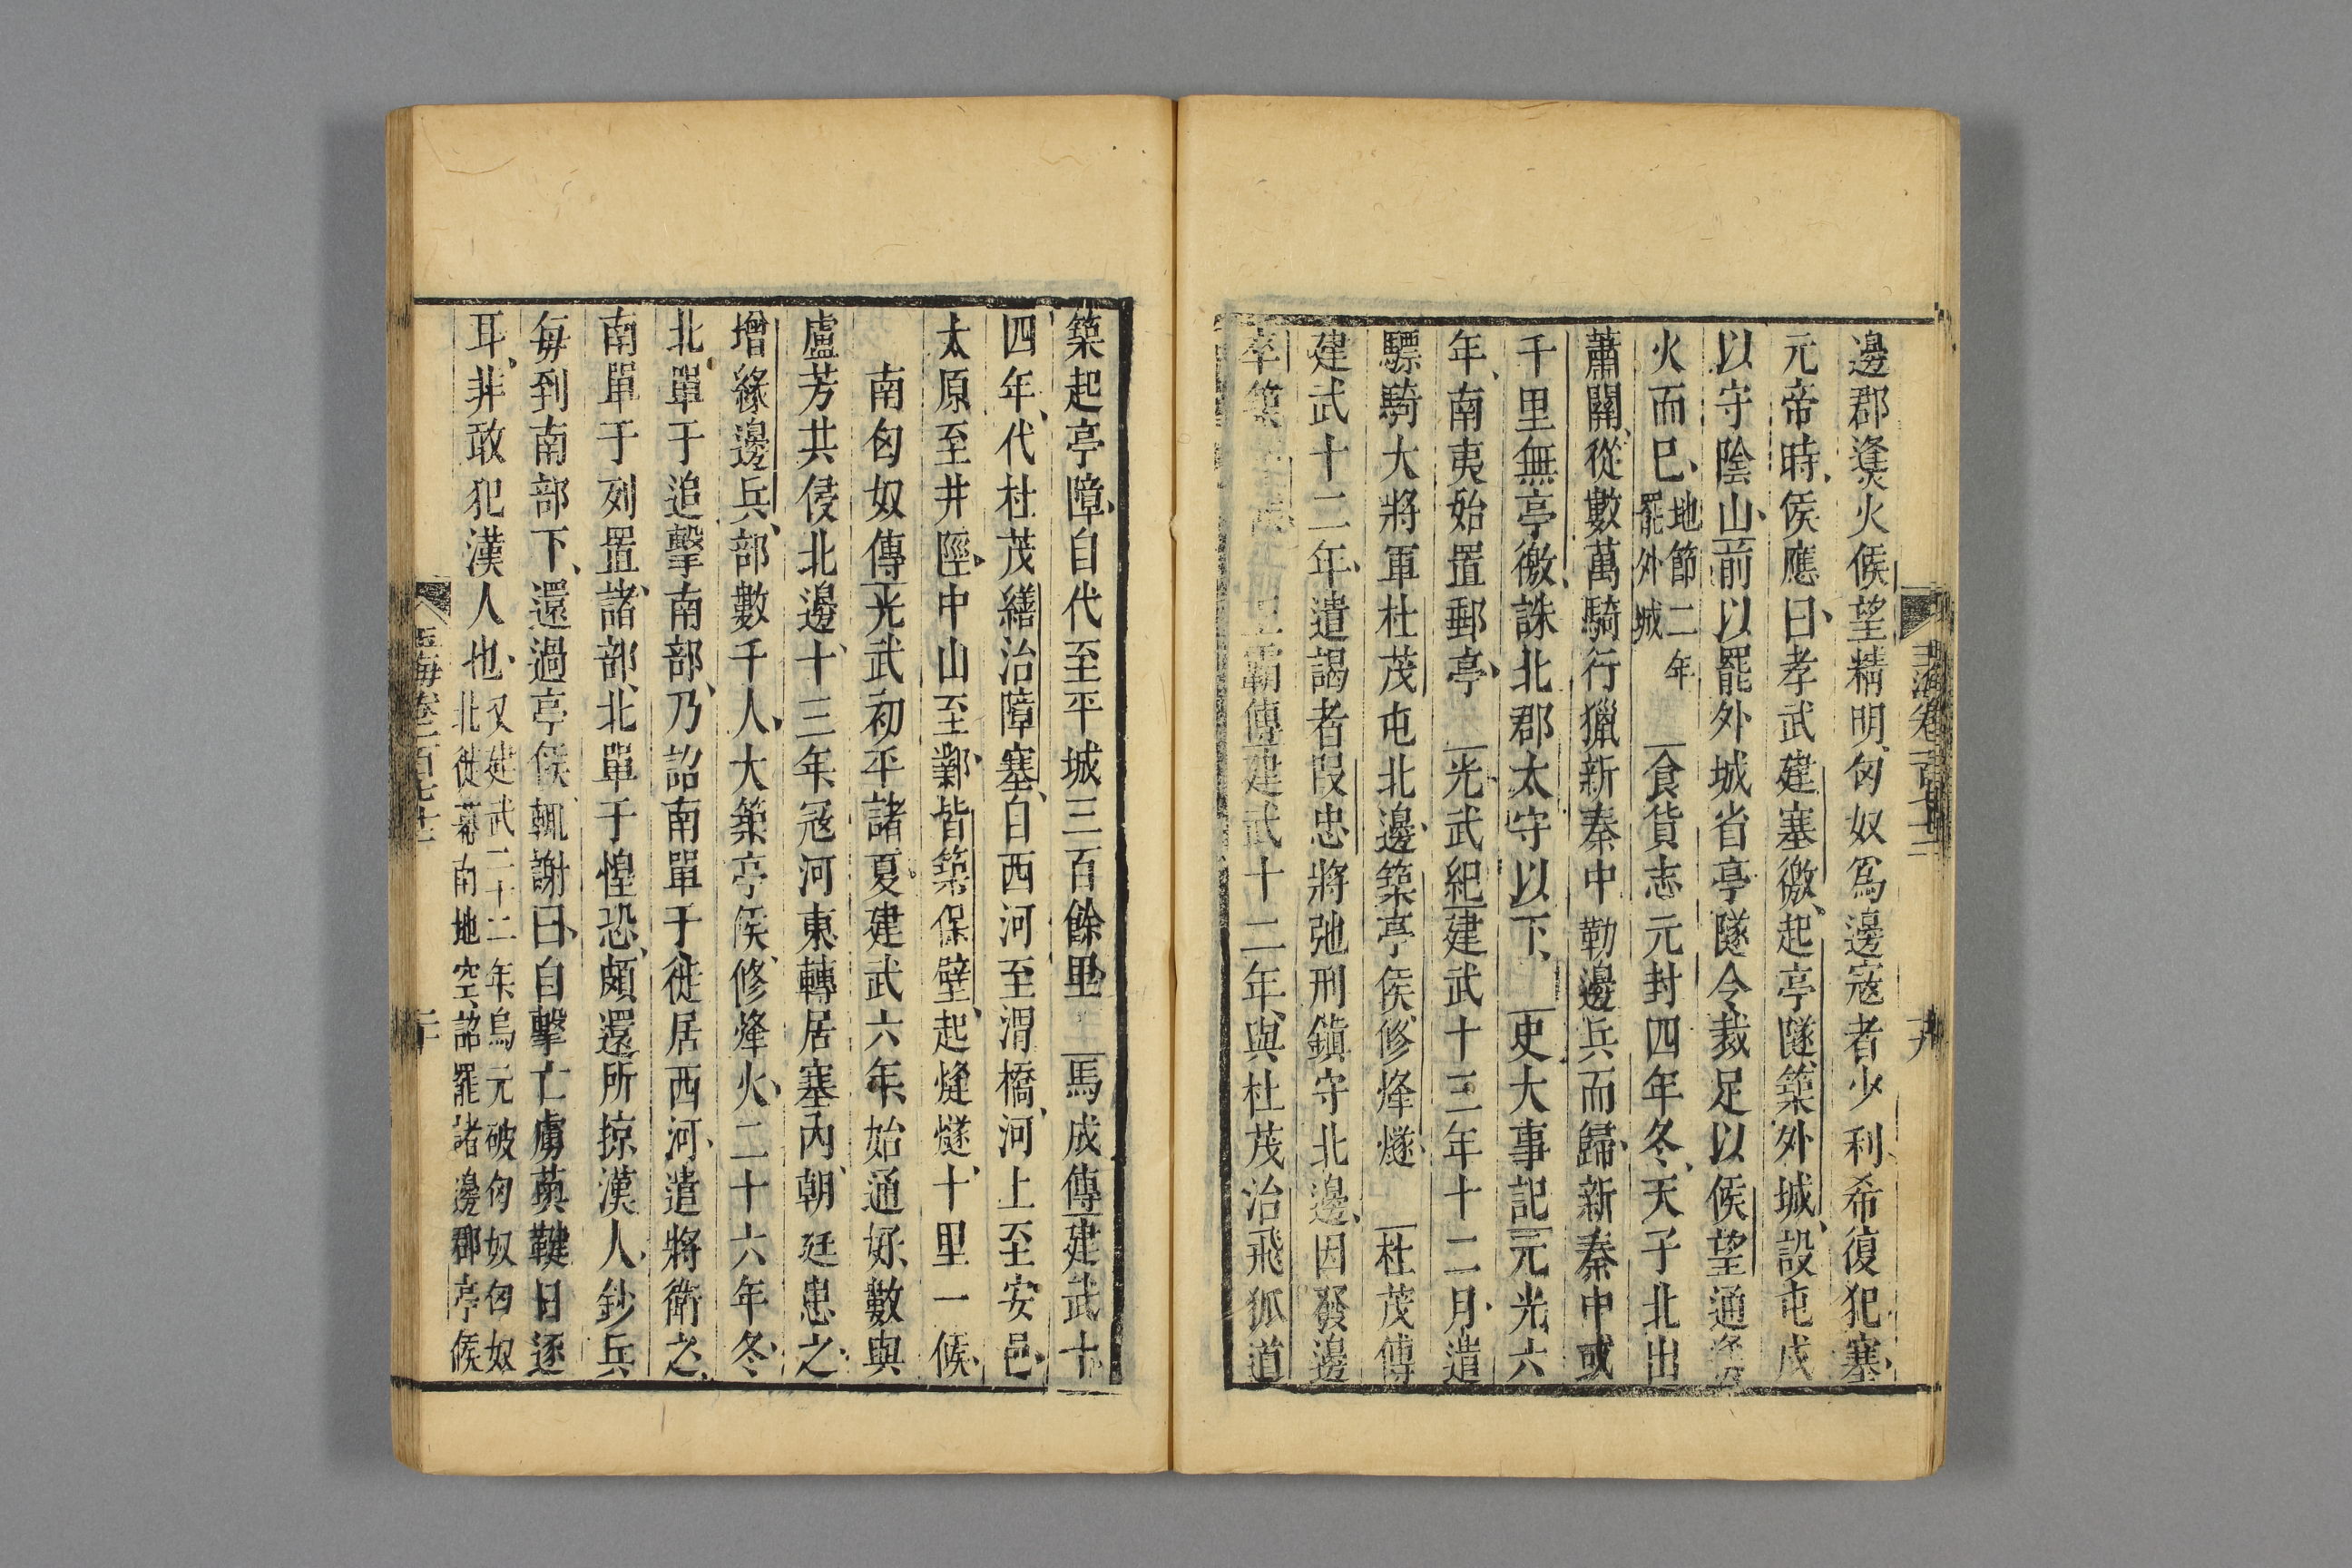 邊郡逢火候望精明匈奴爲邊寇者少利希復犯塞
元帝時侯應曰孝武建塞徼起亭隧築外城設屯戍
以守陰山前以罷外城省亭隧令裁足以候望通
火而已地節二年
罷外城
食貨志元封四年冬天子北出
蕭關從數萬騎行獵新秦中勒邊兵而歸新秦中或
千里無亭徼誅北郡太守以下 史大事記元光六
年南夷始置郵亭 光武紀建武十三年十二月遣
驃騎大將軍杜茂屯北邊築亭侯修烽燧 杜茂傳
建武十二年遣謁者段忠將弛刑鎮守北邊因發邊
卒築 王霸傳建武十二年與杜茂治飛狐道
築起亭障自代至平城三百餘里 馬成傳建武十
四年代杜茂繕治障塞自西河至渭橋河上至安邑
太原至井陘中山至鄴皆築保壁起烽燧十里一候
南匈奴傳光武初平諸夏建武六年始通好數與
盧芳共侵北邊十三年寇河東轉居塞內朝廷患之
增緣邊兵部數千人大築亭侯修烽火二十六年冬
北單于追擊南部乃詔南單于徙居西河遣將衛之
南單于列置諸部北單于惶恐頗還所掠漢人鈔兵
每到南部下還過亭候輒謝曰自擊亡虜薁鞬日逐
耳非敢犯漢人也又建武二十二年烏元破匈奴匈奴
北徙幕南地空詔罷諸邊郡亭候
玉海卷一百七十二
二十